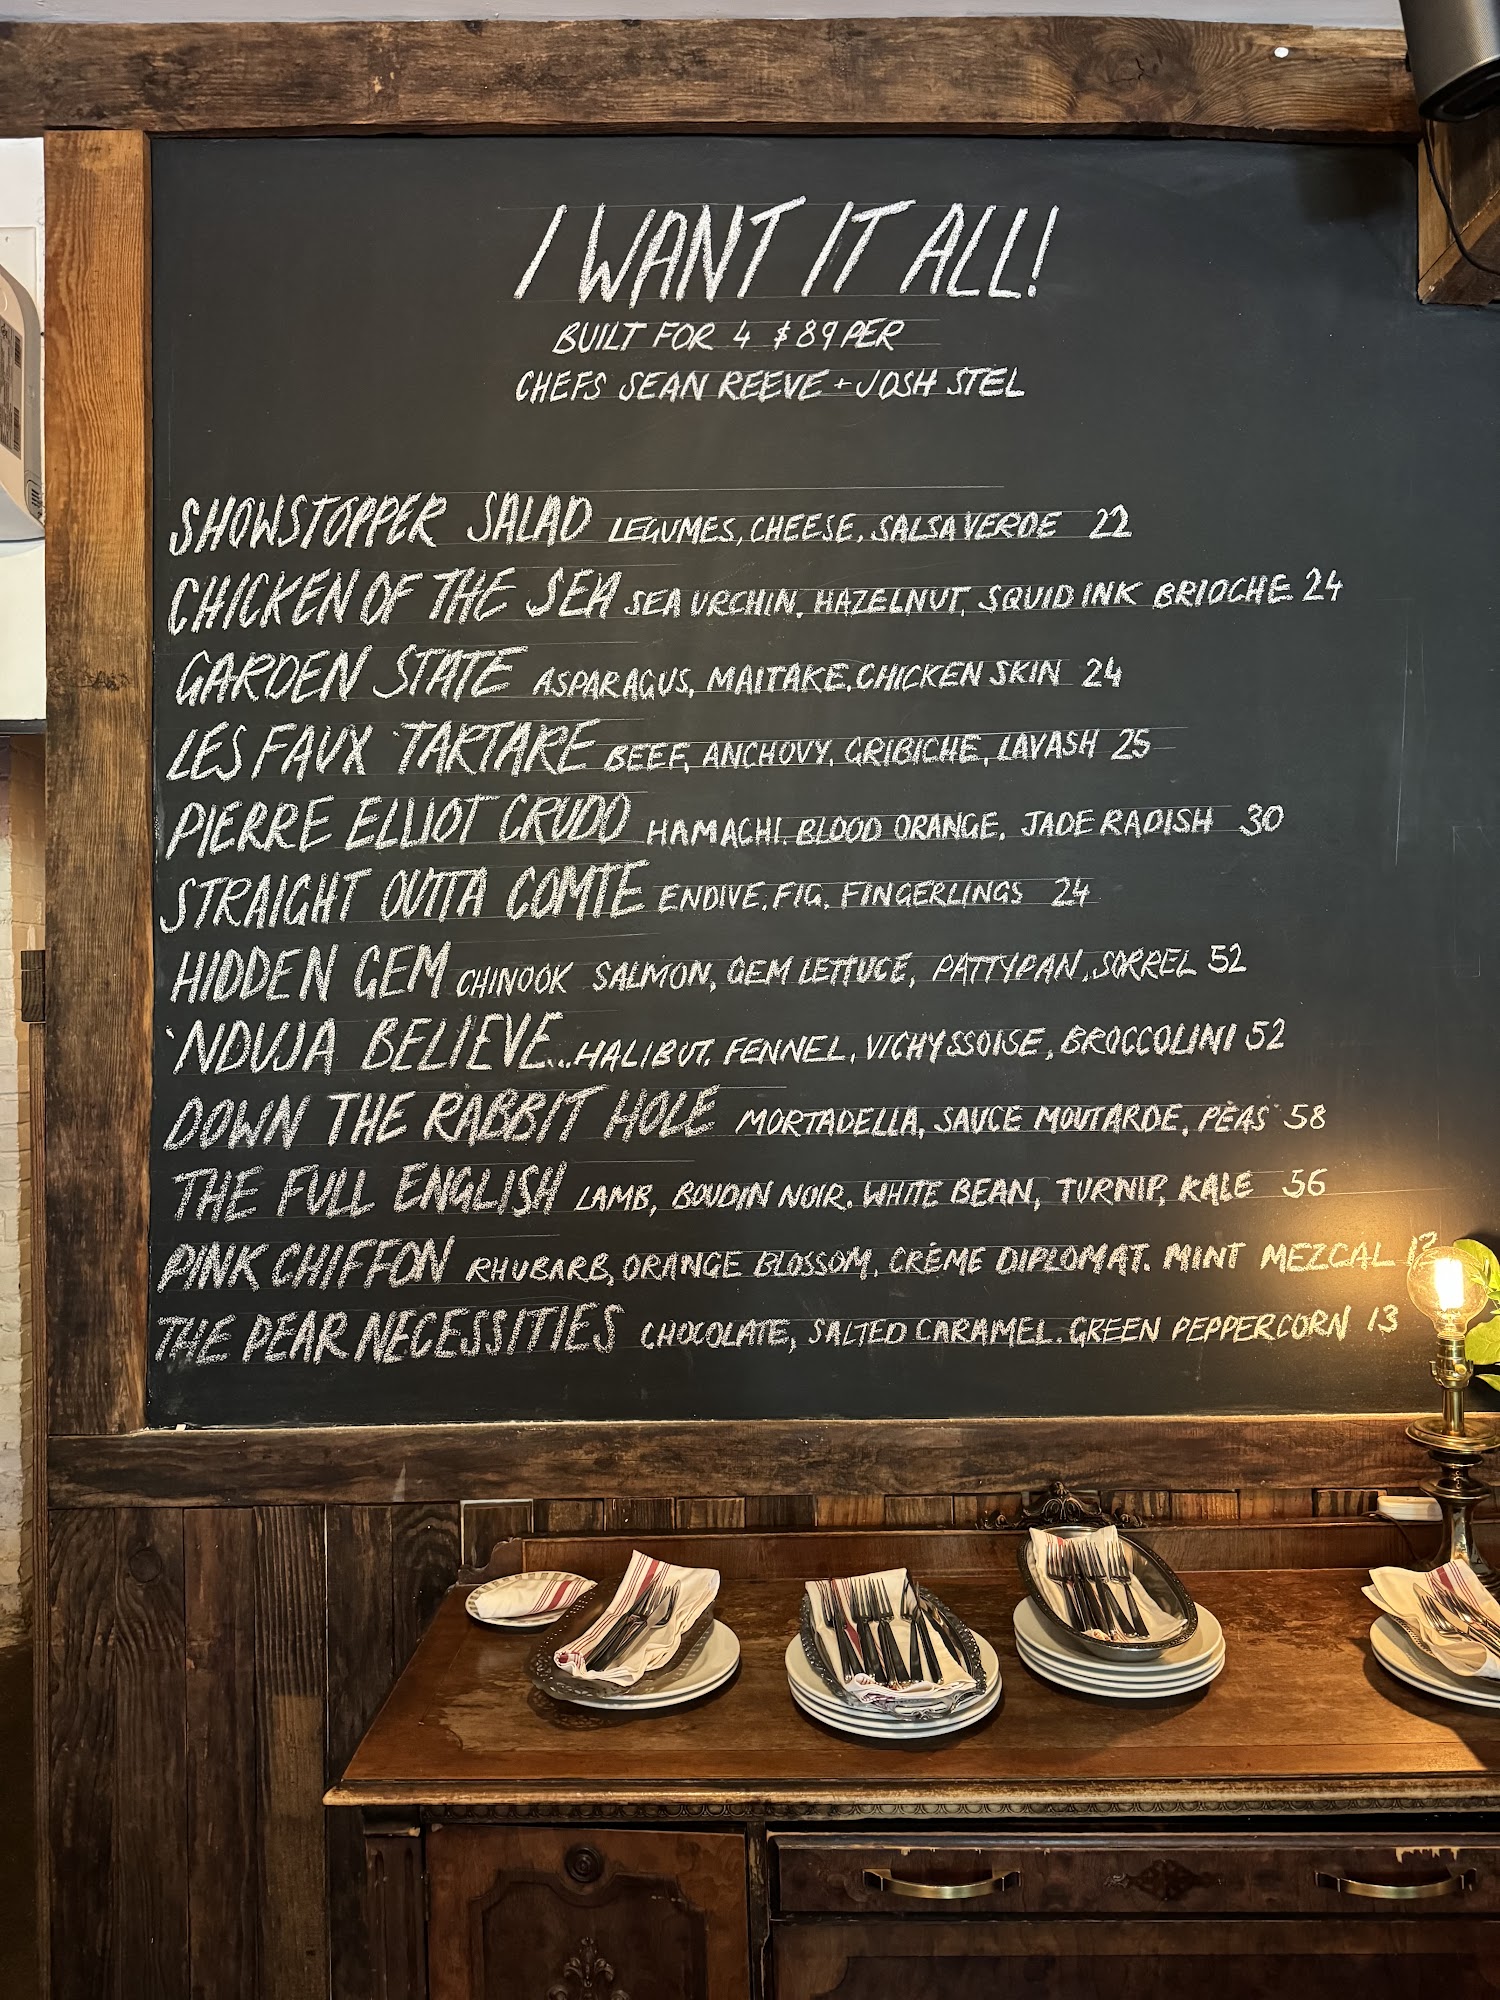 I WANT IT ALL!
BUILT FOR 4 $89 PER
CHEFS SEAN REEVE + JOSH STEL
SHOWSTOPPER SALAD LEGUMES, CHEESE, SALSA VERDE 22
CHICKEN OF THE SEA SEA URCHIN, HAZELNUT, SQUID INK BRIOCHE 24
GARDEN STATE ASPARAGUS, MAITAKE, CHICKEN SKIN 24
LES FAUX TARTARE BEEF, ANCHOVY, GRIBICHE, LAVASH 25
PIERRE ELLIOT CRUDO HAMACHI, BLOOD ORANGE, JADE RADISH 30
STRAIGHT OUTTA COMTE ENDIVE, FIG, FINGERLINGS 24
HIDDEN GEM CHINOOK SALMON, GEM LETTUCE, PATTYPAN, SORREL 52
'NDUJA BELIEVE... HALIBUT, FENNEL, VICHYSSOISE, BROCCOLINI 52
DOWN THE RABBIT HOLE MORTADELLA, SAUCE MOUTARDE, PEAS 58
THE FULL ENGLISH LAMB, BOUDIN NOIR, WHITE BEAN, TURNIP, KALE 56
PINK CHIFFON RHUBARB, ORANGE BLOSSOM, CRÈME DIPLOMAT, MINT MEZCAL
THE PEAR NECESSITIES CHOCOLATE, SALTED CARAMEL, GREEN PEPPERCORN 13